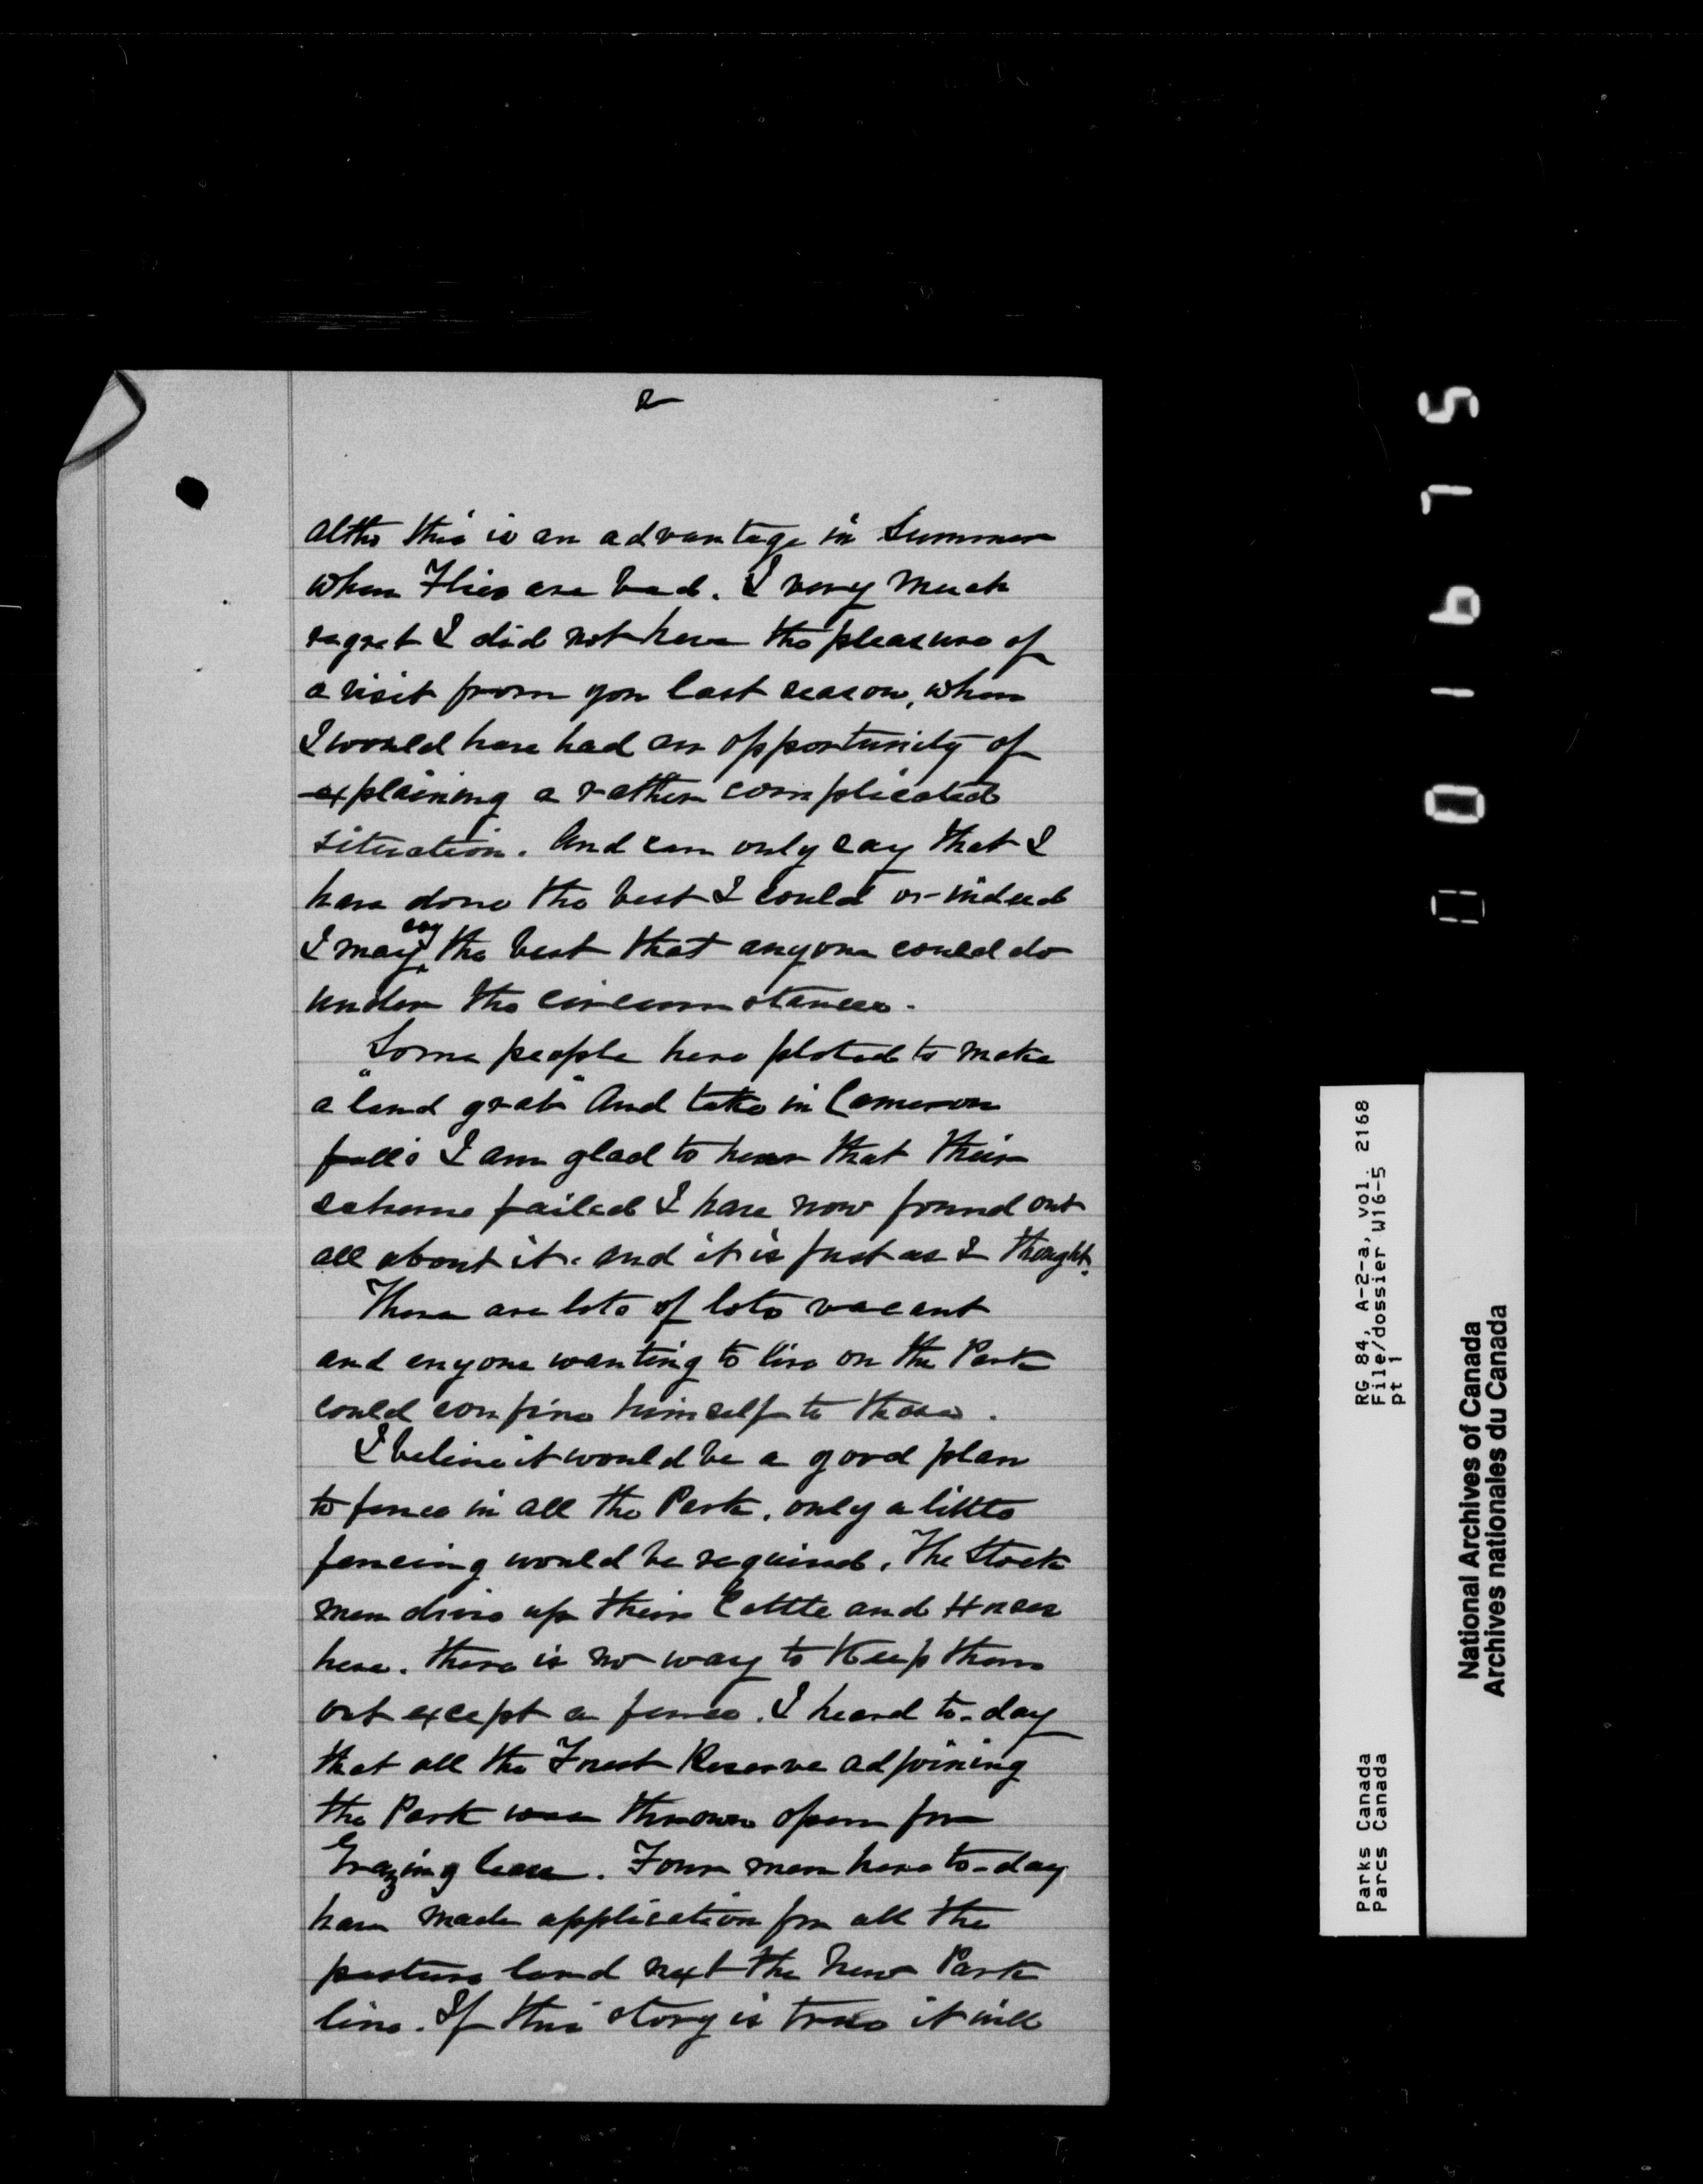 2
altho this is an advantage in Summer
when Flies are bad. I very much
regret I did not have the pleasure of
a visit from you last season, when
I would have had an opportunity of
explaining a rather complicated
situation. And can only say that I
have done the best I could or indeed
I may say the best that anyone could do
under the circumstances.
Some people here ploted to make
a "land grab" And take in Cameron
falls I am glad to hear that their
scheme failed I have now found out
all about it. and it is just as I thought.
There are lots of lots vacant
and anyone wanting to live on the Park
could confine himself to those.
I belive it would be a good plan
to fence in all the Park, only a little
fencing would be required. The Stock
men drive up their Cattle and Horses
here. there is no way to Keep them
out except a fence. I heard to-day
that all the Forest Reserve adjoining
the Park was thrown open for
Grazing lease. Four men here to-day
have made application for all the
pasture land next the New Park
line. If this story is true it will
001675
RG 84, A-2-a, vol. 2168
File/dossier W16-5
pt 1
Parks Canada
Parcs Canada
National Archives of Canada
Archives nationales du Canada